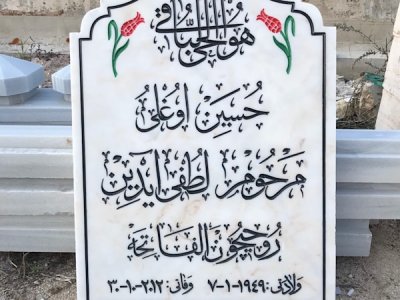 هو الحي الباقي
حسين اوغلى
مرحوم لطفى آيدين
روحيچون الفاتحه
ولادتى ١٩٤٩-١-٧ وفاتى ٢٠١٢-١٠-٣٠